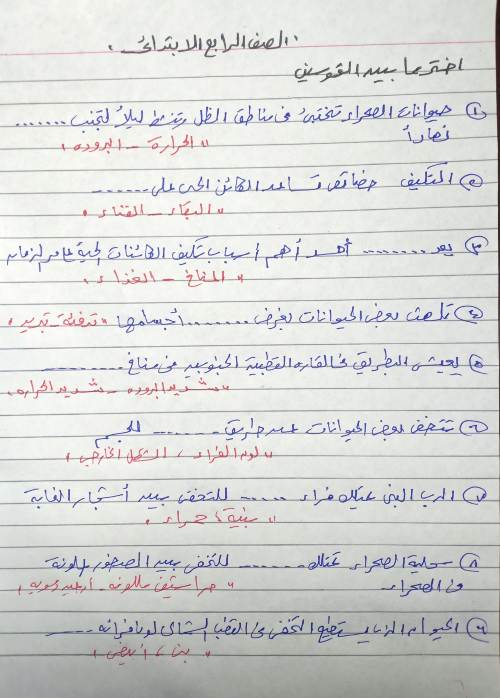 الصف الرابع الابتدائى .
اختر مما بين القوسين
① حيوانات الصحراء تختبئ فى مناطق الظل وتنشط ليلاً لتجنب ........
نهاراً
" الحرارة - البروده "
② التكيف خصائص تساعد الكائن الحى على .......
" البقاء - الفناء "
③ يعد ......... أحد أهم أسباب تكيف الكائنات الحية عبر الزمان
" المناخ - الغذاء "
④ تلهث بعض الحيوانات بغرض ........ أجسامها " تدفئة - تبريد "
⑤ يعيش البطريق فى القاره القطبية الجنوبيه فى مناخ ........
" شديد البروده - شديد الحراره "
⑥ تتخفى بعض الحيوانات عن طريق ........ للجسم
" لون الفراء ، الشكل الخارجى "
⑦ الدب البنى يمتلك فراء ...... للتخفى بين أشجار الغابة
" بنية ، حمراء "
⑧ سحلية الصحراء تمتلك ......... للتخفى بين الصخور الملونة
فى الصحراء
" حراشيف ملونه - أرجل قويه "
⑨ الحيوان الذى يستطيع التخفى فى القطب الشمالى لون فرائه .....
" بنى ، أبيض "